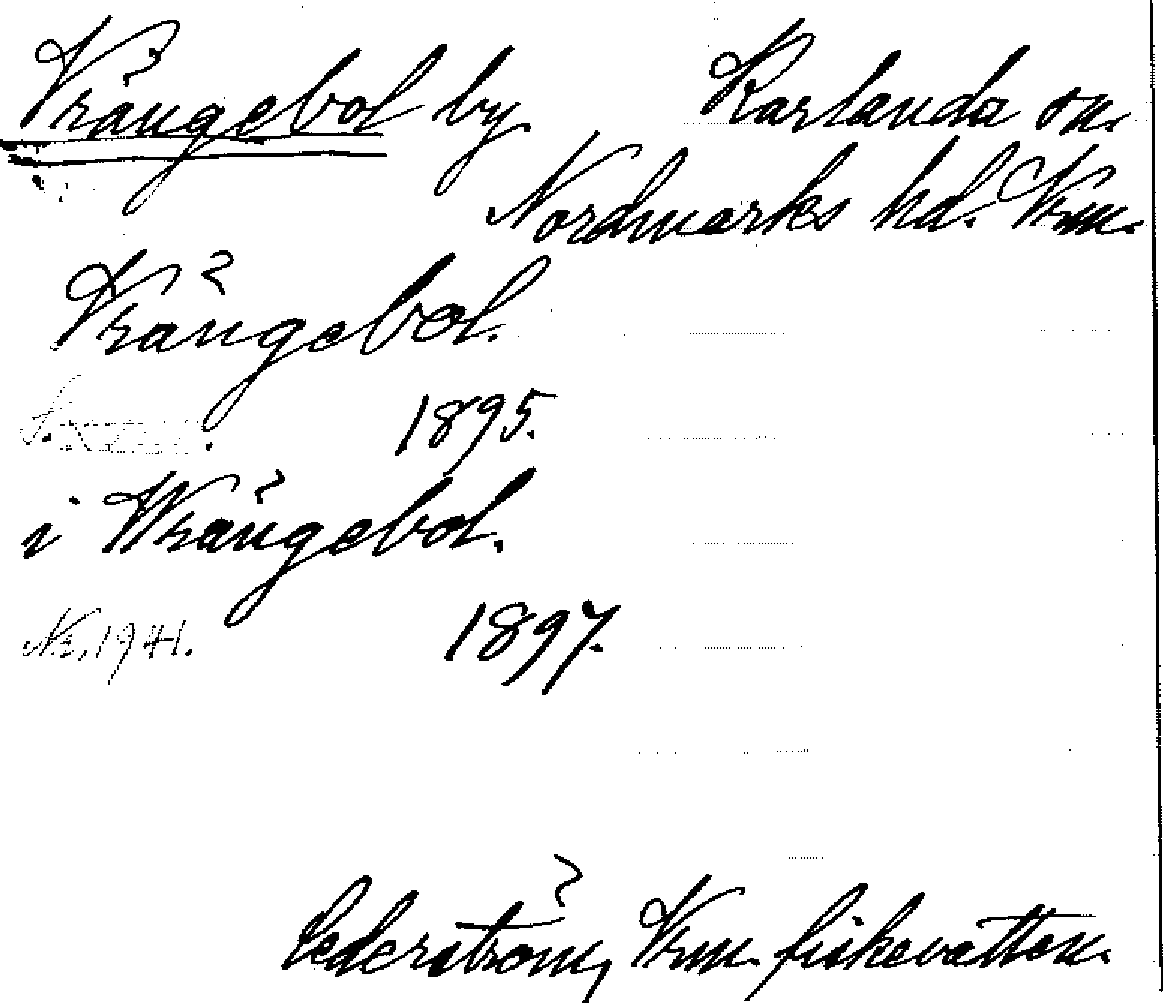 Vrängebol by Karlanda sn.
Nordmarks hd. Vrm.
Vrängebol.
1895.
i Wrängebol.
1941. 1897.
Cederström, Vrm. fiskevatten.